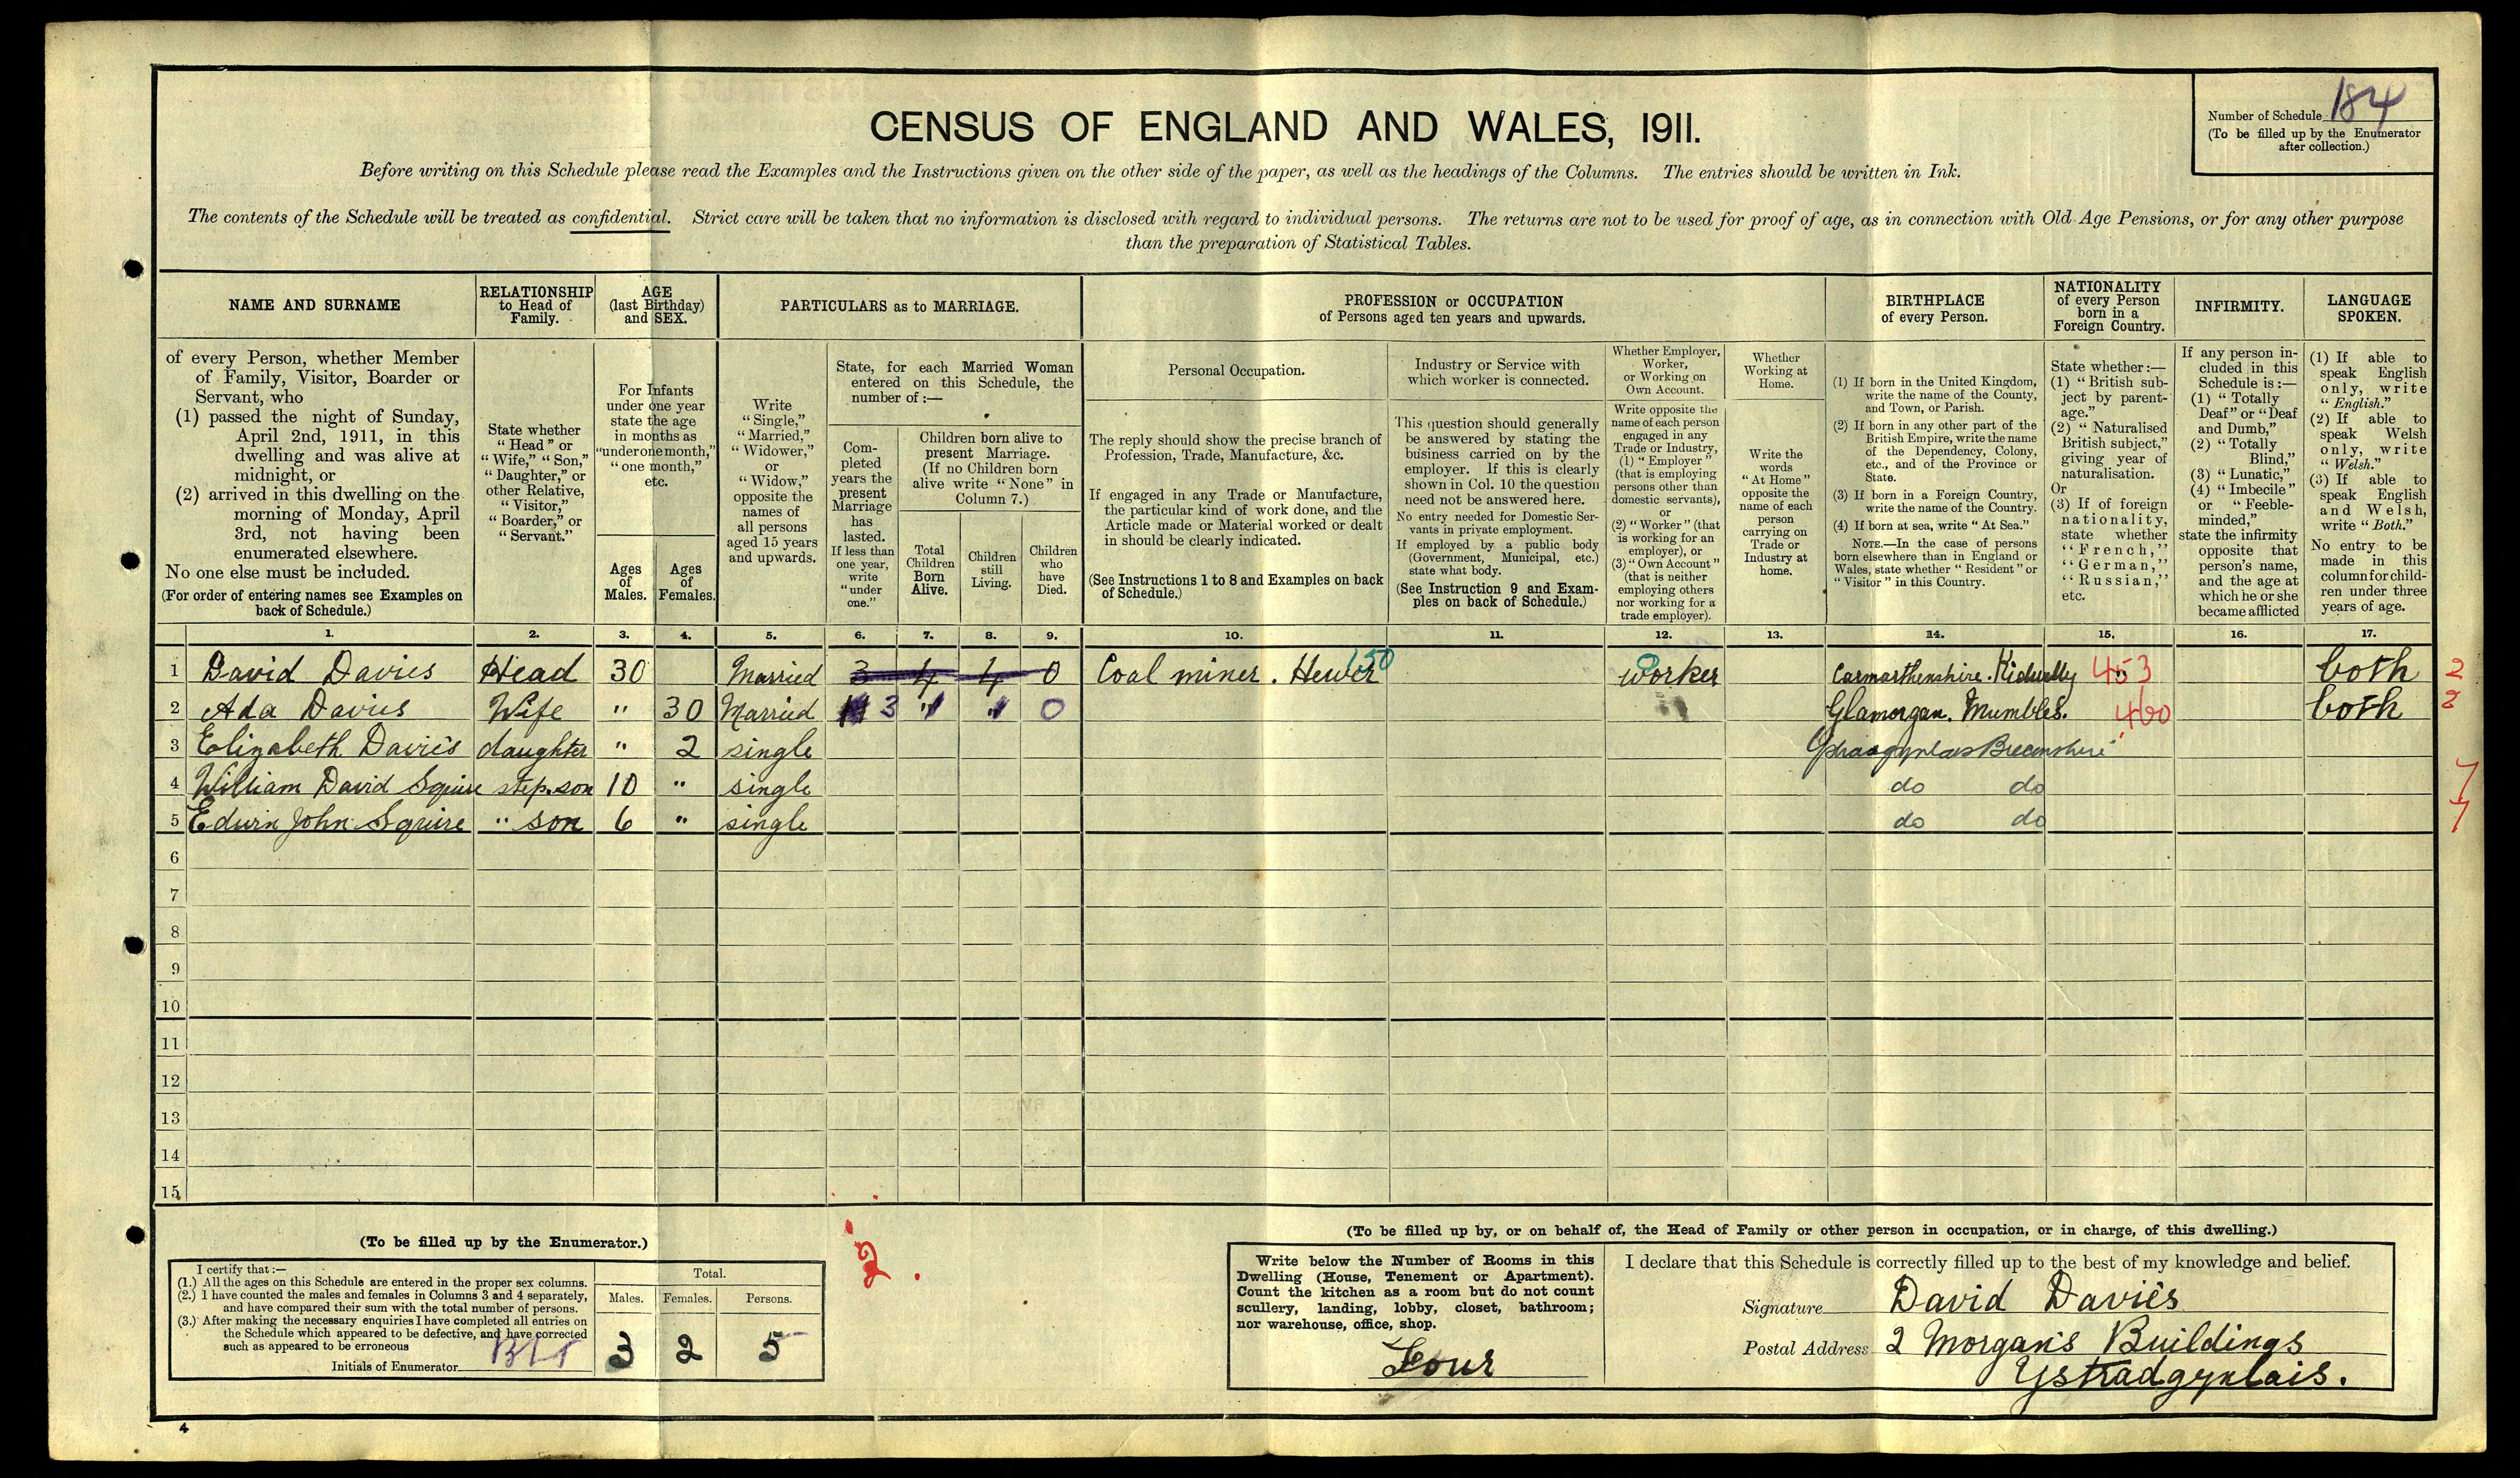 Number of Schedule 184
(To be filled up by the Enumerator
after collection.)
CENSUS OF ENGLAND AND WALES, 1911.
Before writing on this Schedule please read the Examples and the Instructions given on the other side of the paper, as well as the headings of the Columns. The entries should be written in Ink.
The contents of the Schedule will be treated as confidential. Strict care will be taken that no information is disclosed with regard to individual persons. The returns are not to be used for proof of age, as in connection with Old Age Pensions, or for any other purpose
than the preparation of Statistical Tables.
NAME AND SURNAME
RELATIONSHIP
to Head of
Family.
AGE
(last Birthday)
and SEX.
PARTICULARS as to MARRIAGE.
PROFESSION or OCCUPATION
of Persons aged ten years and upwards.
BIRTHPLACE
of every Person.
NATIONALITY
of every Person
born in a
Foreign Country.
INFIRMITY.
LANGUAGE
SPOKEN.
of every Person, whether Member
of Family, Visitor, Boarder or
Servant, who
(1) passed the night of Sunday,
April 2nd, 1911, in this
dwelling and was alive at
midnight, or
(2) arrived in this dwelling on the
morning of Monday, April
3rd, not having been
enumerated elsewhere.
No one else must be included.
(For order of entering names see Examples on
back of Schedule.)
State whether
"Head" or
"Wife," "Son,"
"Daughter," or
other Relative,
"Visitor,"
"Boarder," or
"Servant."
For Infants
under one year
state the age
in months as
"under one month,"
"one month,"
etc.
Ages
of
Males.
Ages
of
Females.
Write
"Single,"
"Married,"
"Widower,"
or
"Widow,"
opposite the
names of
all persons
aged 15 years
and upwards.
State, for each Married Woman
entered on this Schedule, the
number of :—
Com-
pleted
years the
present
Marriage
has
lasted.
If less than
one year,
write
"under
one."
Children born alive to
present Marriage.
(If no Children born
alive write "None" in
Column 7.)
Total
Children
Born
Alive.
Children
still
Living.
Children
who
have
Died.
Personal Occupation.
The reply should show the precise branch of
Profession, Trade, Manufacture, &c.
If engaged in any Trade or Manufacture,
the particular kind of work done, and the
Article made or Material worked or dealt
in should be clearly indicated.
(See Instructions 1 to 8 and Examples on back
of Schedule.)
Industry or Service with
which worker is connected.
This question should generally
be answered by stating the
business carried on by the
employer. If this is clearly
shown in Col. 10 the question
need not be answered here.
No entry needed for Domestic Ser-
vants in private employment.
If employed by a public body
(Government, Municipal, etc.)
state what body.
(See Instruction 9 and Exam-
ples on back of Schedule.)
Whether Employer,
Worker,
or Working on
Own Account.
Write opposite the
name of each person
engaged in any
Trade or Industry,
(1) "Employer"
(that is employing
persons other than
domestic servants),
or
(2) "Worker" (that
is working for an
employer), or
(3) "Own Account"
(that is neither
employing others
nor working for a
trade employer).
Whether
Working at
Home.
Write the
words
"At Home"
opposite the
name of each
person
carrying on
Trade or
Industry at
home.
(1) If born in the United Kingdom,
write the name of the County,
and Town, or Parish.
(2) If born in any other part of the
British Empire, write the name
of the Dependency, Colony,
etc., and of the Province or
State.
(3) If born in a Foreign Country,
write the name of the Country.
(4) If born at sea, write "At Sea."
NOTE.—In the case of persons
born elsewhere than in England or
Wales, state whether "Resident" or
"Visitor" in this Country.
State whether :—
(1) "British sub-
ject by parent-
age."
(2) "Naturalised
British subject,"
giving year of
naturalisation.
Or
(3) If of foreign
nationality,
state whether
"French,"
"German,"
"Russian,"
etc.
If any person in-
cluded in this
Schedule is :—
(1) "Totally
Deaf" or "Deaf
and Dumb,"
(2) "Totally
Blind,"
(3) "Lunatic,"
(4) "Imbecile"
or "Feeble-
minded,"
state the infirmity
opposite that
person's name,
and the age at
which he or she
became afflicted
(1) If able to
speak English
only, write
"English."
(2) If able to
speak Welsh
only, write
"Welsh."
(3) If able to
speak English
and Welsh,
write "Both."
No entry to be
made in this
column for child-
ren under three
years of age.
1. 2. 3. 4. 5. 6. 7. 8. 9. 10. 11. 12. 13. 14. 15. 16. 17.
1 David Davies Head 30 Married 3 4 4 0 Coal miner. Hewer 150 Worker Carmarthenshire. Kidwelly 453 both 2
2 Ada Davies Wife " 30 Married 3 0 Glamorgan. Mumbles. 460 both 2
3 Elizabeth Davies daughter " 2 single
4 William David Squire step.son 10 " single do do 7
5 Edwin John Squire " son 6 " single do do 7
6
7
8
9
10
11
12
13
14
15
(To be filled up by the Enumerator.)
I certify that :—
(1.) All the ages on this Schedule are entered in the proper sex columns.
(2.) I have counted the males and females in Columns 3 and 4 separately,
and have compared their sum with the total number of persons.
(3.) After making the necessary enquiries I have completed all entries on
the Schedule which appeared to be defective, and have corrected
such as appeared to be erroneous
Initials of Enumerator
Total.
Males. Females. Persons.
3 2 5
2
(To be filled up by, or on behalf of, the Head of Family or other person in occupation, or in charge, of this dwelling.)
Write below the Number of Rooms in this
Dwelling (House, Tenement or Apartment).
Count the kitchen as a room but do not count
scullery, landing, lobby, closet, bathroom;
nor warehouse, office, shop.
Four
I declare that this Schedule is correctly filled up to the best of my knowledge and belief.
Signature David Davies
Postal Address 2 Morgan's Buildings
Ystradgynlais.
4